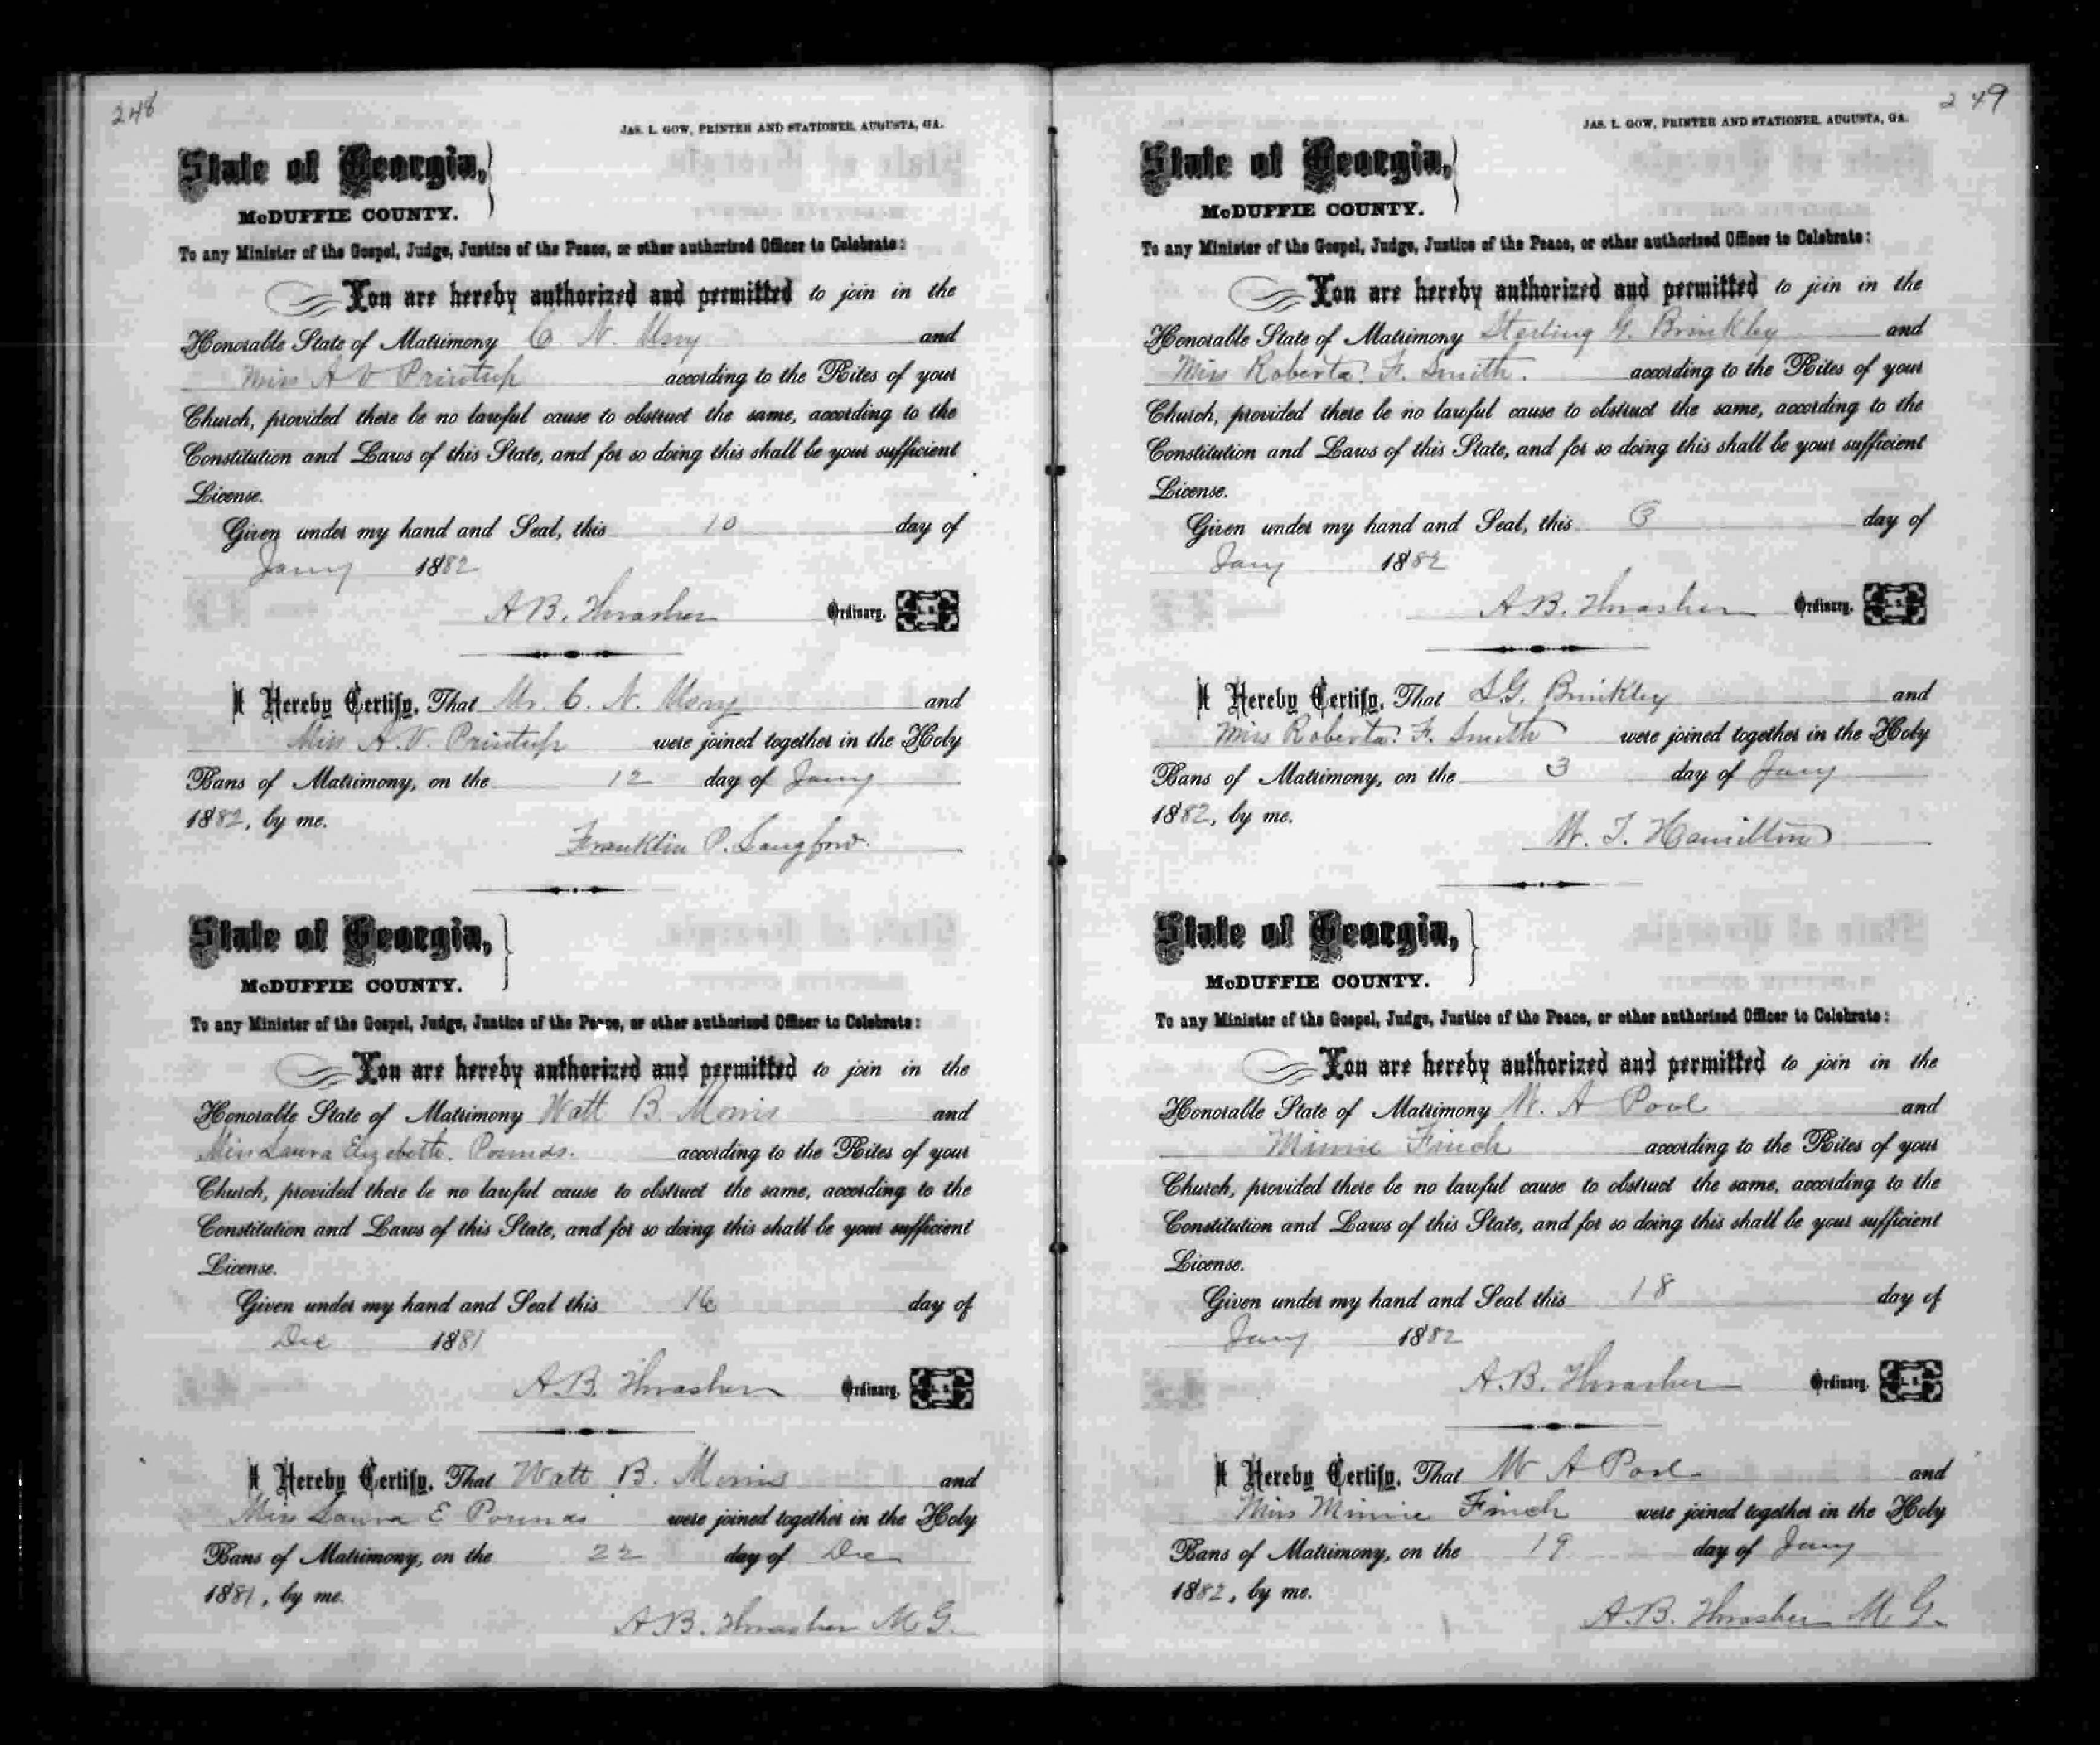 248
JAS. L. GOW, PRINTER AND STATIONER, AUGUSTA, GA.
State of Georgia,
McDUFFIE COUNTY.
To any Minister of the Gospel, Judge, Justice of the Peace, or other authorized Officer to Celebrate:
You are hereby authorized and permitted to join in the
Honorable State of Matrimony C. N. Usry and
Miss A V Printup according to the Rites of your
Church, provided there be no lawful cause to obstruct the same, according to the
Constitution and Laws of this State, and for so doing this shall be your sufficient
License.
Given under my hand and Seal, this 10 day of
Jany 1882
A B. Thrasher Ordinary. L. S.
I Hereby Certify, That Mr. C. N. Usry and
Miss A. V. Printup were joined together in the Holy
Bans of Matrimony, on the 12 day of Jany
1882, by me.
Franklin P. Langford.
State of Georgia,
McDUFFIE COUNTY.
To any Minister of the Gospel, Judge, Justice of the Peace, or other authorized Officer to Celebrate:
You are hereby authorized and permitted to join in the
Honorable State of Matrimony Watt B. Morris and
Miss Laura Elizabeth. Pounds. according to the Rites of your
Church, provided there be no lawful cause to obstruct the same, according to the
Constitution and Laws of this State, and for so doing this shall be your sufficient
License.
Given under my hand and Seal this 16 day of
Dec 1881
A.B. Thrasher Ordinary. L. S.
I Hereby Certify, That Watt B. Morris and
Miss Laura E Pounds were joined together in the Holy
Bans of Matrimony, on the 22 day of Dec
1881, by me.
A.B. Thrasher M G.
249
JAS. L. GOW, PRINTER AND STATIONER, AUGUSTA, GA.
State of Georgia,
McDUFFIE COUNTY.
To any Minister of the Gospel, Judge, Justice of the Peace, or other authorized Officer to Celebrate:
You are hereby authorized and permitted to join in the
Honorable State of Matrimony Sterling G. Brinkley and
Miss Roberta. F. Smith. according to the Rites of your
Church, provided there be no lawful cause to obstruct the same, according to the
Constitution and Laws of this State, and for so doing this shall be your sufficient
License.
Given under my hand and Seal, this 3 day of
Jany 1882
A B. Thrasher Ordinary. L. S.
I Hereby Certify, That S.G. Brinkley and
Miss Roberta. F. Smith were joined together in the Holy
Bans of Matrimony, on the 3 day of Jany
1882, by me.
W. T. Hamilton
State of Georgia,
McDUFFIE COUNTY.
To any Minister of the Gospel, Judge, Justice of the Peace, or other authorized Officer to Celebrate:
You are hereby authorized and permitted to join in the
Honorable State of Matrimony W. A Pool and
Minnie Finch according to the Rites of your
Church, provided there be no lawful cause to obstruct the same, according to the
Constitution and Laws of this State, and for so doing this shall be your sufficient
License.
Given under my hand and Seal this 18 day of
Jany 1882
A.B. Thrasher Ordinary. L. S.
I Hereby Certify, That W A Pool and
Miss Minnie Finch were joined together in the Holy
Bans of Matrimony, on the 19 day of Jany
1882, by me.
A.B. Thrasher M G.